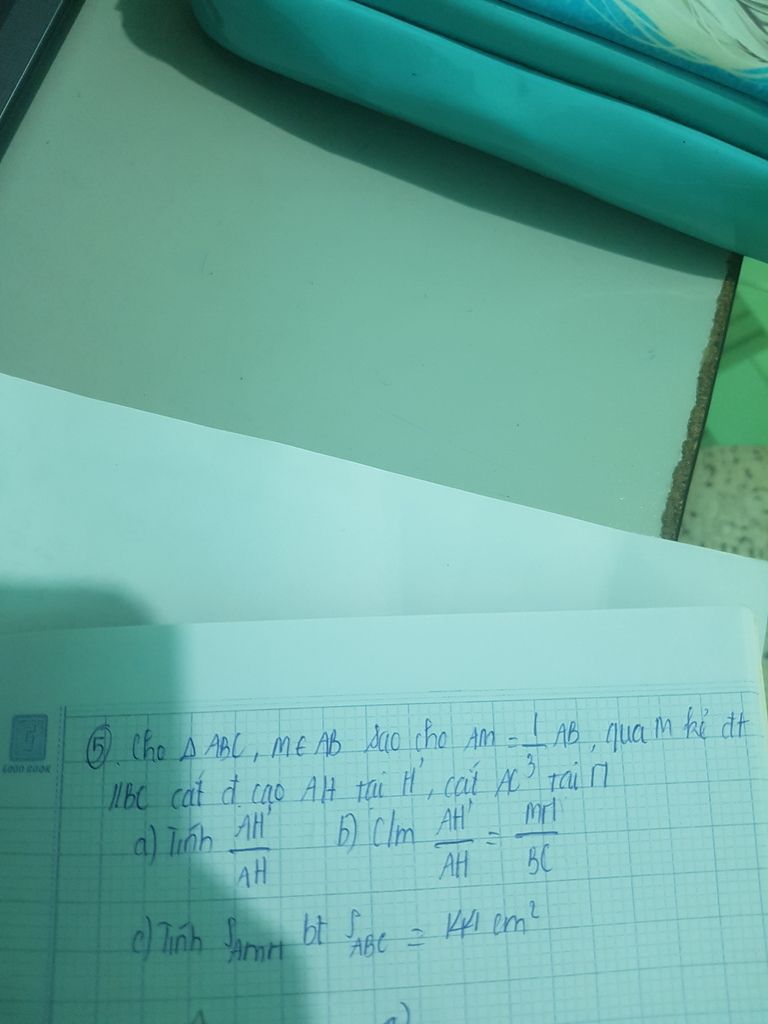 ⑤. Cho Δ ABC, M ∈ AB sao cho AM = 1/3 AB, qua M kẻ đt
GOOD BOOK
//BC cắt đ cao AH tại H', cắt AC tại N
a) Tính AH'/AH b) C/m AH'/AH = MN/BC
c) Tính S_AMN bt S_ABC = cm²